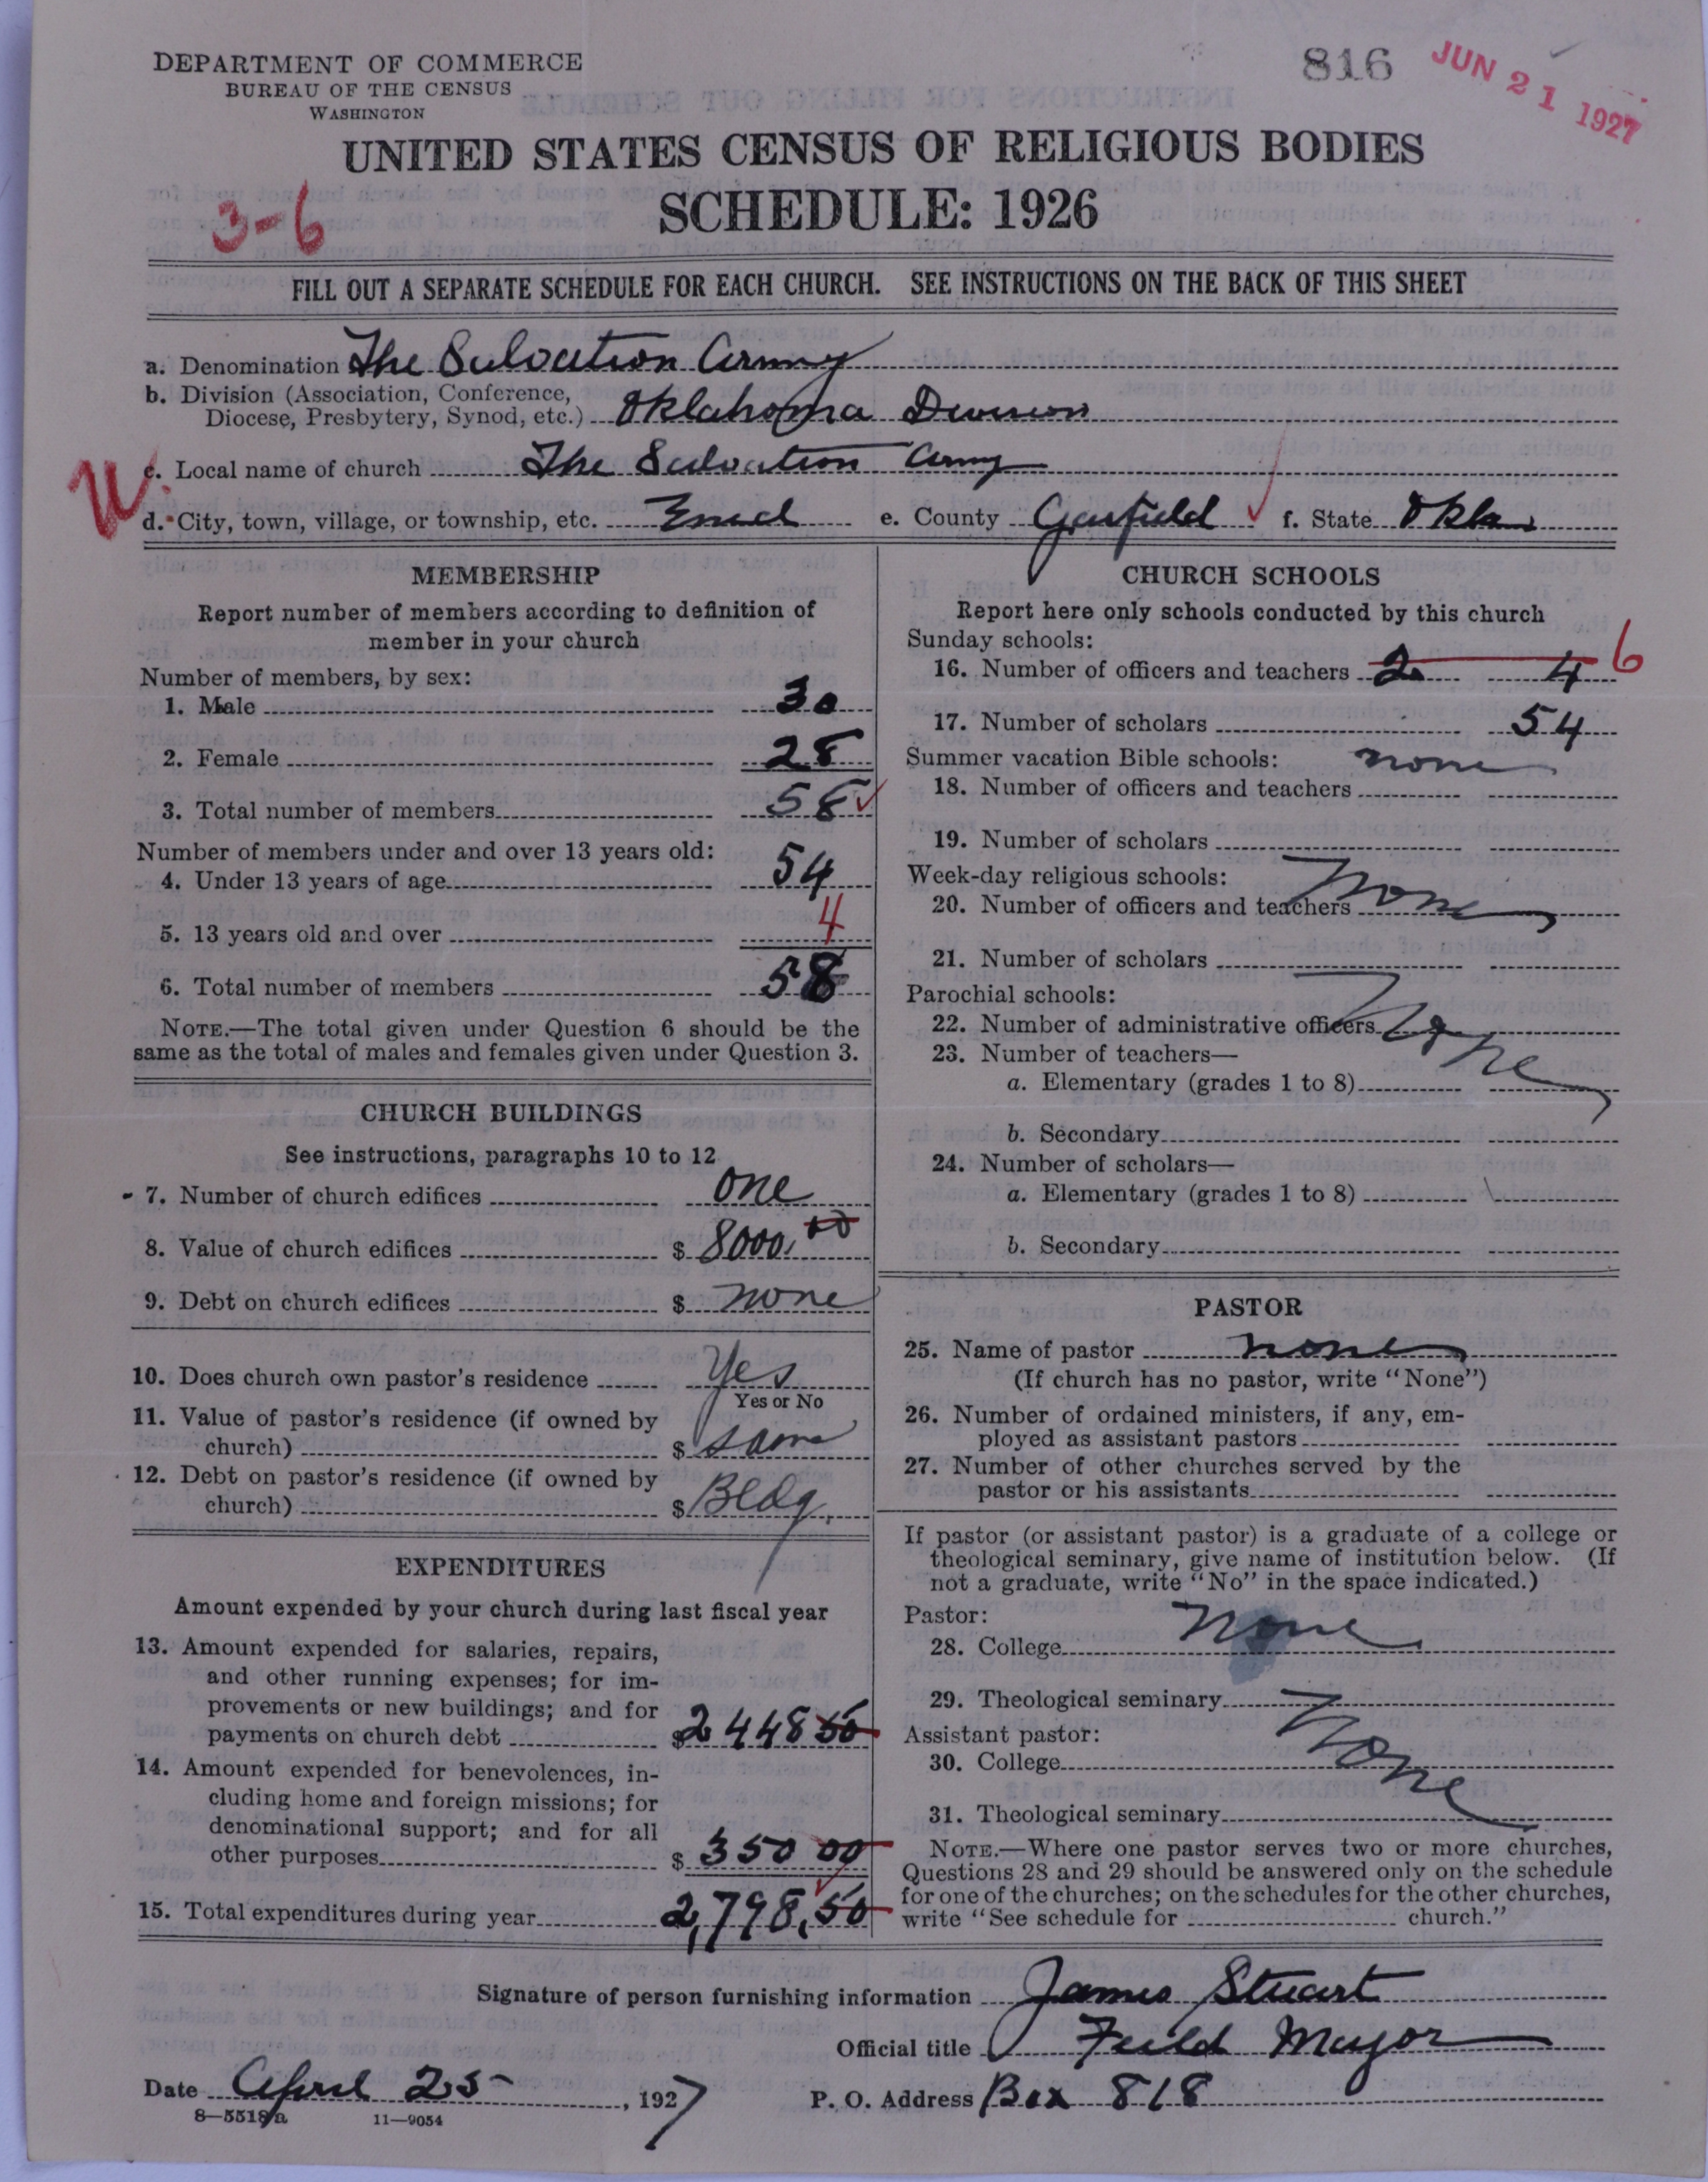 DEPARTMENT OF COMMERCE
BUREAU OF THE CENSUS
WASHINGTON
816
JUN 21 1927
UNITED STATES CENSUS OF RELIGIOUS BODIES
SCHEDULE: 1926
3-6
FILL OUT A SEPARATE SCHEDULE FOR EACH CHURCH. SEE INSTRUCTIONS ON THE BACK OF THIS SHEET
a. Denomination The Salvation Army
b. Division (Association, Conference,
Diocese, Presbytery, Synod, etc.) Oklahoma Division
c. Local name of church The Salvation Army
d. City, town, village, or township, etc. Enid e. County Garfield f. State Okla
MEMBERSHIP
Report number of members according to definition of
member in your church
Number of members, by sex:
1. Male 30
2. Female 28
3. Total number of members 58
Number of members under and over 13 years old:
4. Under 13 years of age 54
5. 13 years old and over 4
6. Total number of members 58
NOTE.—The total given under Question 6 should be the
same as the total of males and females given under Question 3.
CHURCH BUILDINGS
See instructions, paragraphs 10 to 12
7. Number of church edifices one
8. Value of church edifices $ 8000.00
9. Debt on church edifices $ none
10. Does church own pastor's residence Yes
Yes or No
11. Value of pastor's residence (if owned by
church) $ same
12. Debt on pastor's residence (if owned by
church) $ Bldg.
EXPENDITURES
Amount expended by your church during last fiscal year
13. Amount expended for salaries, repairs,
and other running expenses; for im-
provements or new buildings; and for
payments on church debt $ 2448 50
14. Amount expended for benevolences, in-
cluding home and foreign missions; for
denominational support; and for all
other purposes $ 350 00
15. Total expenditures during year 2,798.50
CHURCH SCHOOLS
Report here only schools conducted by this church
Sunday schools:
16. Number of officers and teachers 2 4 6
17. Number of scholars 54
Summer vacation Bible schools: none
18. Number of officers and teachers
19. Number of scholars
Week-day religious schools:
20. Number of officers and teachers None
21. Number of scholars
Parochial schools:
22. Number of administrative officers None
23. Number of teachers—
a. Elementary (grades 1 to 8)
b. Secondary
24. Number of scholars—
a. Elementary (grades 1 to 8)
b. Secondary
PASTOR
25. Name of pastor none
(If church has no pastor, write "None")
26. Number of ordained ministers, if any, em-
ployed as assistant pastors
27. Number of other churches served by the
pastor or his assistants
If pastor (or assistant pastor) is a graduate of a college or
theological seminary, give name of institution below. (If
not a graduate, write "No" in the space indicated.)
Pastor:
28. College None
29. Theological seminary
Assistant pastor:
30. College None
31. Theological seminary
NOTE.—Where one pastor serves two or more churches,
Questions 28 and 29 should be answered only on the schedule
for one of the churches; on the schedules for the other churches,
write "See schedule for church."
Signature of person furnishing information James Stuart
Official title Feild Major
Date April 25, 1927 P. O. Address Box 818
8—5518a 11—9054